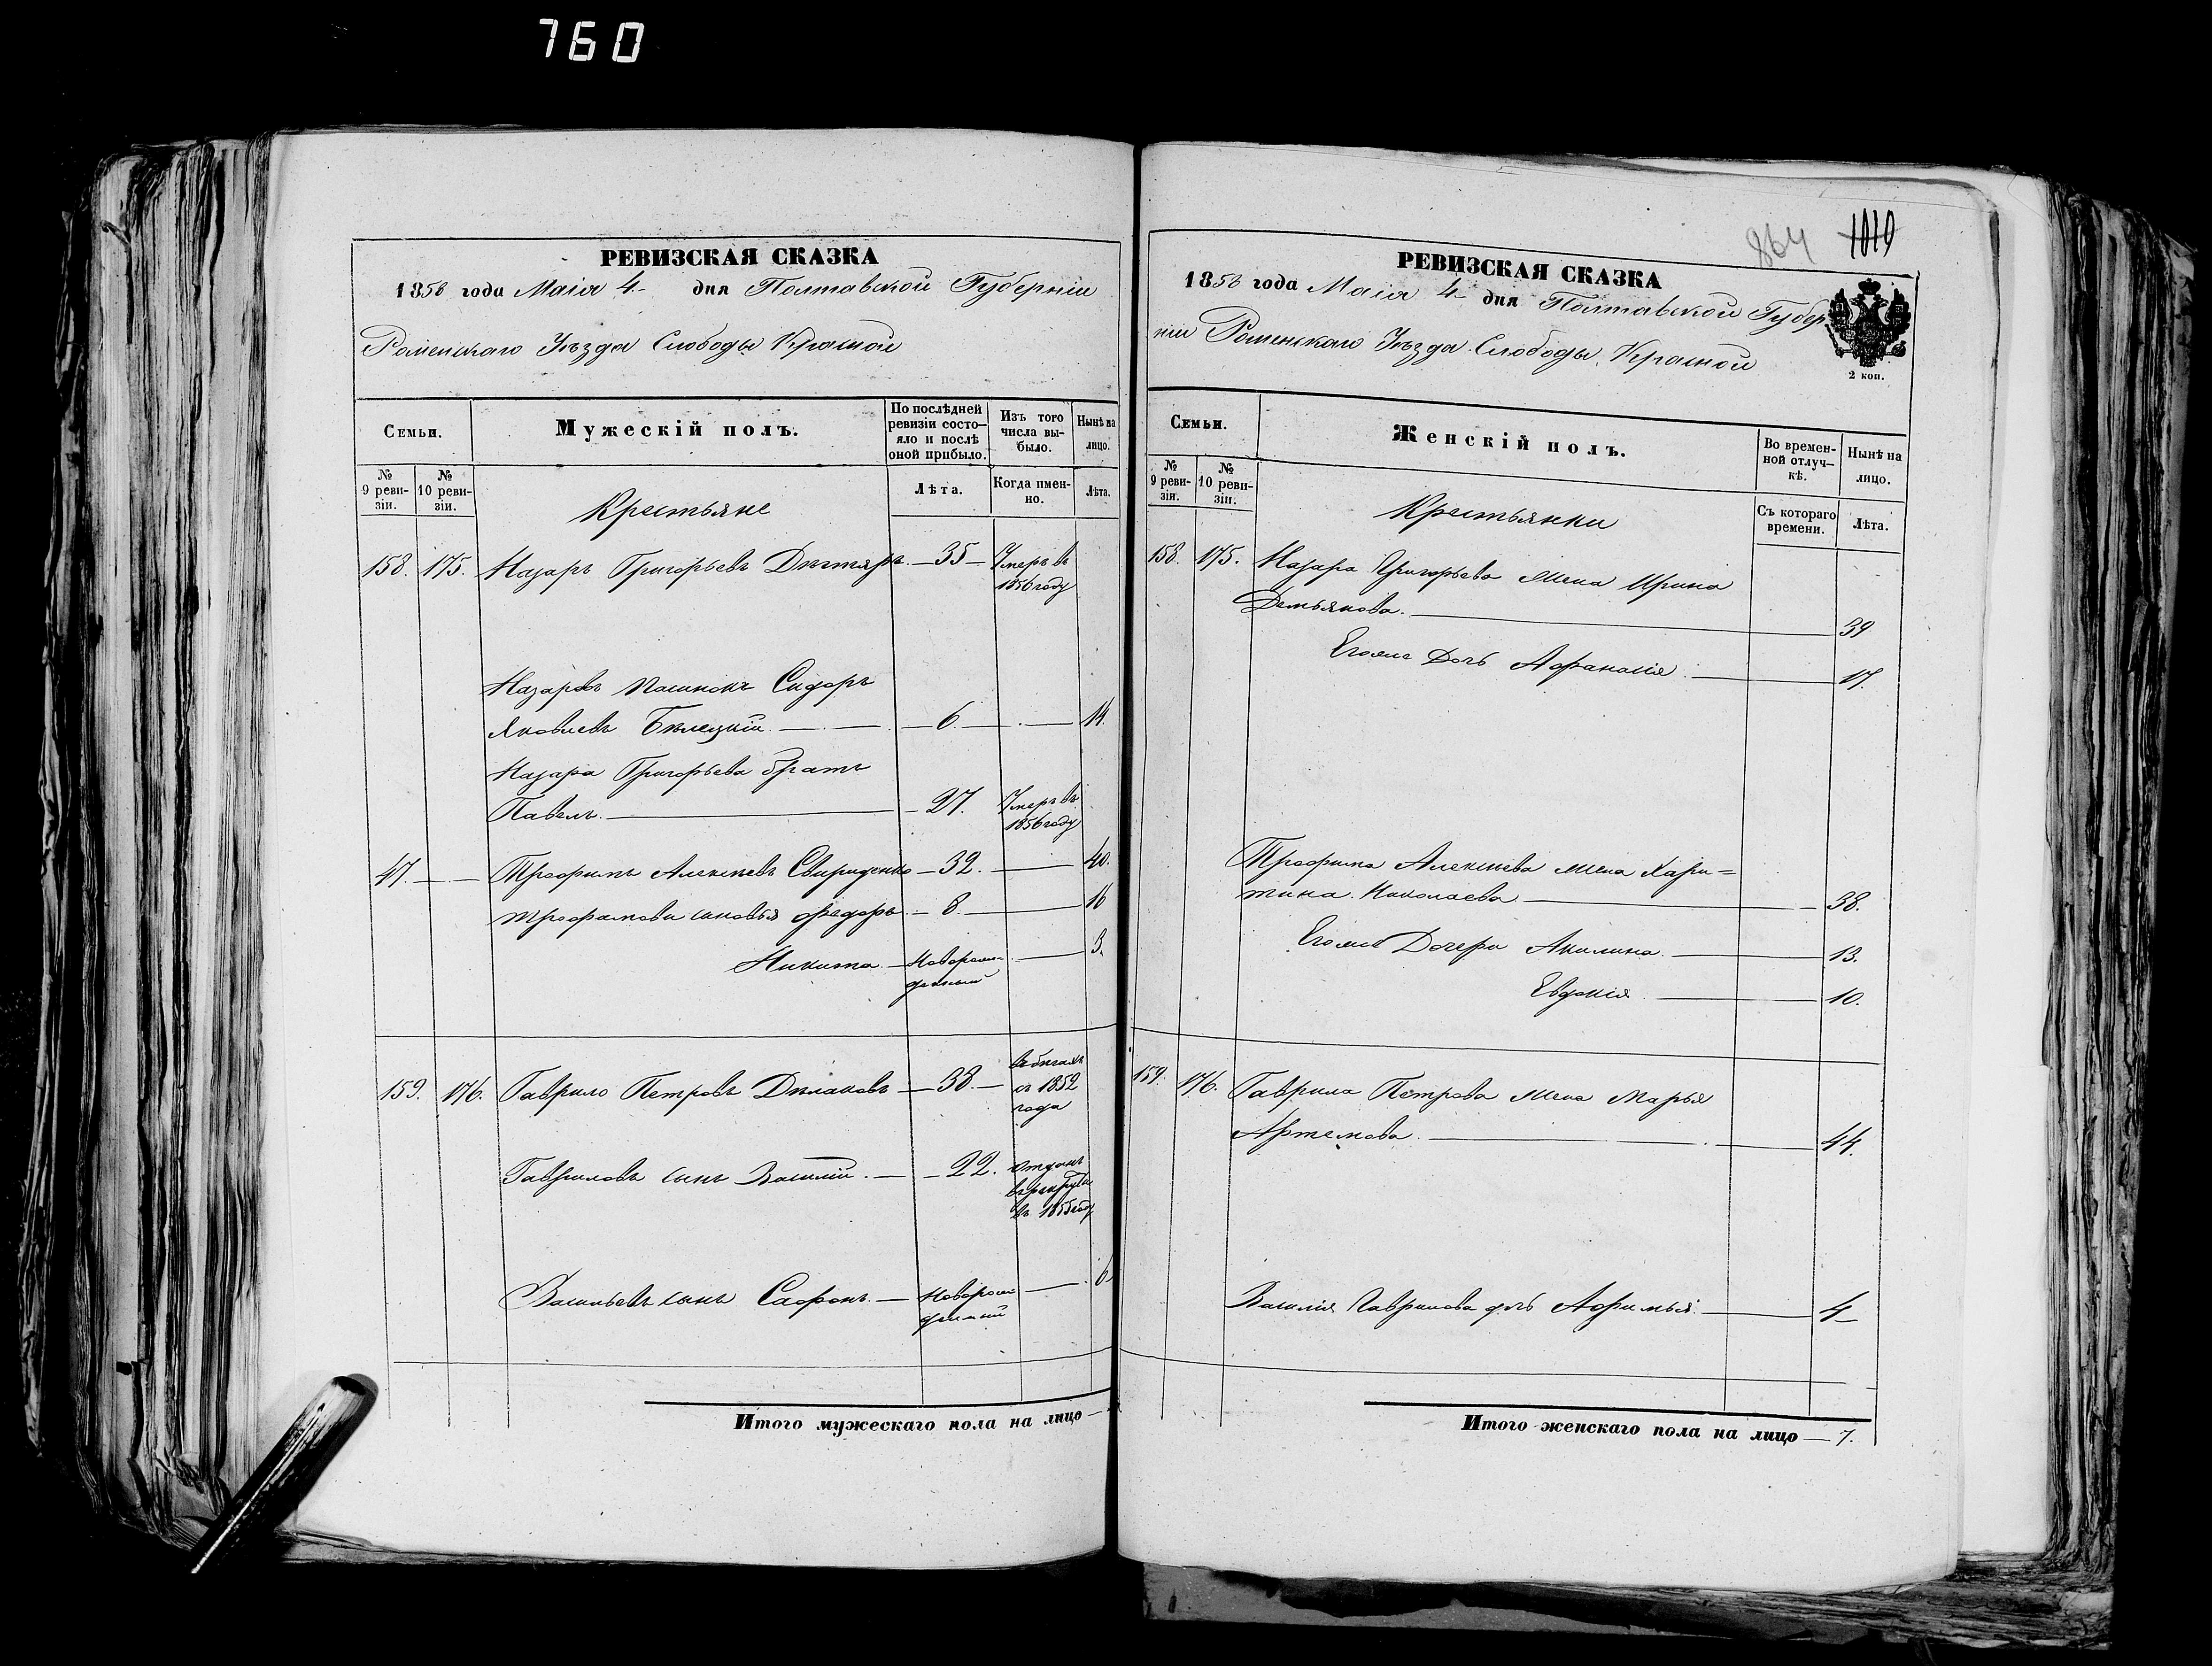 760
РЕВИЗСКАЯ СКАЗКА
1858 года Маія 4 дня Полтавской Губерніи
Роменскаго Уѣзда Слободы Красной
Семьи.
Мужескій полъ.
По послѣдней ревизіи состо-яло и послѣ оной прибыло.
Изъ того числа вы-было.
Нынѣ на лицо.
№ 9 реви-зіи.
№ 10 реви-зіи.
Крестьяне
Лѣта.
Когда имен-но.
Лѣта.
158. 175. Назаръ Григорьевъ Дѣхтяръ. — 35 — Умеръ въ
1856 году
Назаровъ пасинокъ Сидоръ
Яковлевъ Бѣлецкій — 6. — 14.
Назара Григорьева братъ
Павелъ. — 27. Умеръ въ
1856 году
47. — Трофимъ Алексѣевъ Свириденко — 32. — 40.
Трофимови сыновья Федоръ — 8. — 16
Никита — Новорож-
денный — 3.
159. 176. Гаврило Петровъ — 38. — въ бѣгахъ
съ 1852
года
Гавриловъ сынъ Василій. — 22. отданъ
въ рекруты
въ 1855 году
Васильевъ сынъ Сафонъ. — Новорож-
денный — 6
Итого мужескаго пола на лицо —
864 1019
РЕВИЗСКАЯ СКАЗКА
1858 года Маія 4 дня Полтавской Губер
ніи Роменскаго Уѣзда Слободы Красной
2 коп.
Семьи.
Женскій полъ.
Во времен-ной отлуч-кѣ.
Нынѣ на лицо.
№ 9 реви-зіи.
№ 10 реви-зіи.
Крестьянки
Съ котораго времени.
Лѣта.
158. 175. Назара Григорьева жена Ирина
Демьянова. — 39
Егоже дочь Афанасія — 17.
Трофима Алексѣева жена Хари=
тина Николаева — 38.
Егоже Дочери Акилина — 13.
Евдокія — 10.
159. 176. Гаврила Петрова жена Марья
Артемова. — 44.
Василія Гаврилова дочь Афимья — 4
Итого женскаго пола на лицо — 7.